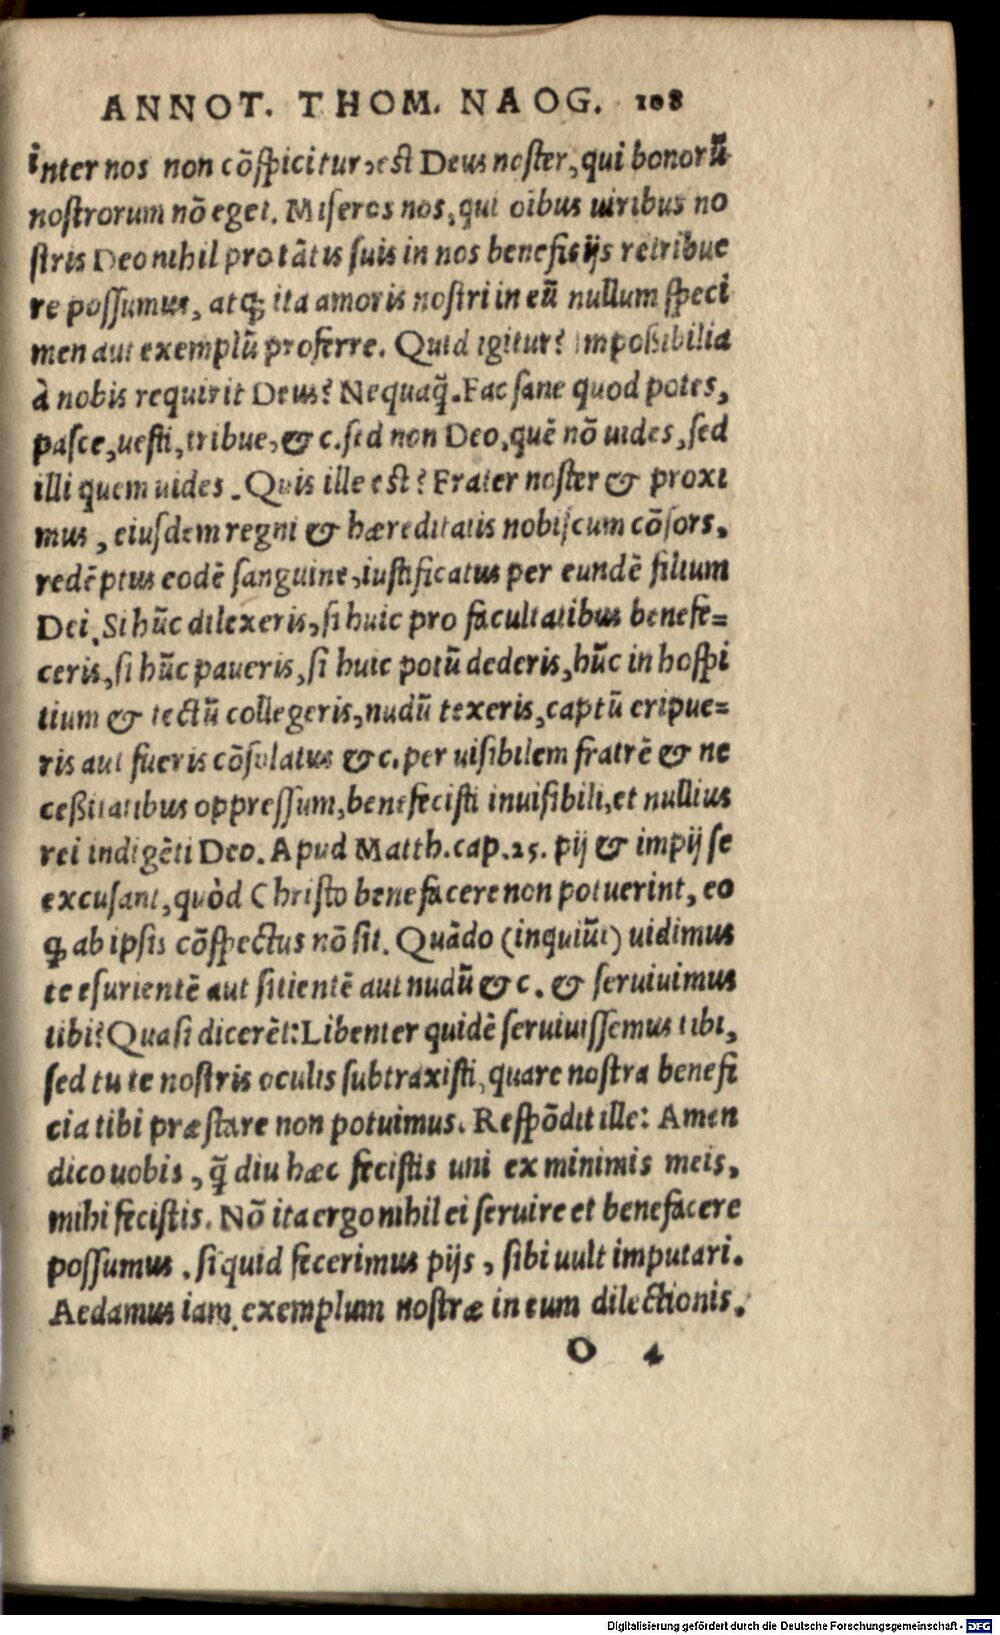 ANNOT. THOM. NAOG. 108
inter nos non cõspicitur, est Deus noster, qui bonorũ
nostrorum nõ eget. Miseros nos, qui oibus uiribus no
stris Deo nihil pro tãtis suis in nos beneficijs retribue
re possumus, atq; ita amoris nostri in eũ nullum speci
men aut exemplũ proferre. Quid igitur? Impoßibilia
à nobis requirit Deus? Nequaq̃. Fac sane quod potes,
pasce, uesti, tribue, & c. sed non Deo, quẽ nõ uides, sed
illi quem uides. Quis ille est? Frater noster & proxi
mus, eiusdem regni & hæreditatis nobiscum cõsors,
redẽptus eodẽ sanguine, iustificatus per eundẽ filium
Dei. Si hũc dilexeris, si huic pro facultatibus benefe=
ceris, si hũc paueris, si huic potũ dederis, hũc in hospi
tium & tectũ collegeris, nudũ texeris, captũ eripue=
ris aut fueris cõsolatus & c. per uisibilem fratrẽ & ne
ceßitatibus oppressum, benefecisti inuisibili, et nullius
rei indigẽti Deo. Apud Matth. cap. 25. pij & impij se
excusant, quòd Christo benefacere non potuerint, eo
q; ab ipsis cõspectus nõ sit. Quãdo (inquiũt) uidimus
te esurientẽ aut sitientẽ aut nudũ & c. & seruiuimus
tibi? Quasi dicerẽt: Libenter quidẽ seruiuissemus tibi,
sed tu te nostris oculis subtraxisti, quare nostra benefi
cia tibi præstare non potuimus. Respõdit ille: Amen
dico uobis, q̃ diu hæc fecistis uni ex minimis meis,
mihi fecistis. Nõ ita ergo nihil ei seruire et benefacere
possumus. si quid fecerimus pijs, sibi uult imputari.
Aedamus iam exemplum nostræ in eum dilectionis.
O 4
Digitalisierung gefördert durch die Deutsche Forschungsgemeinschaft - DFG